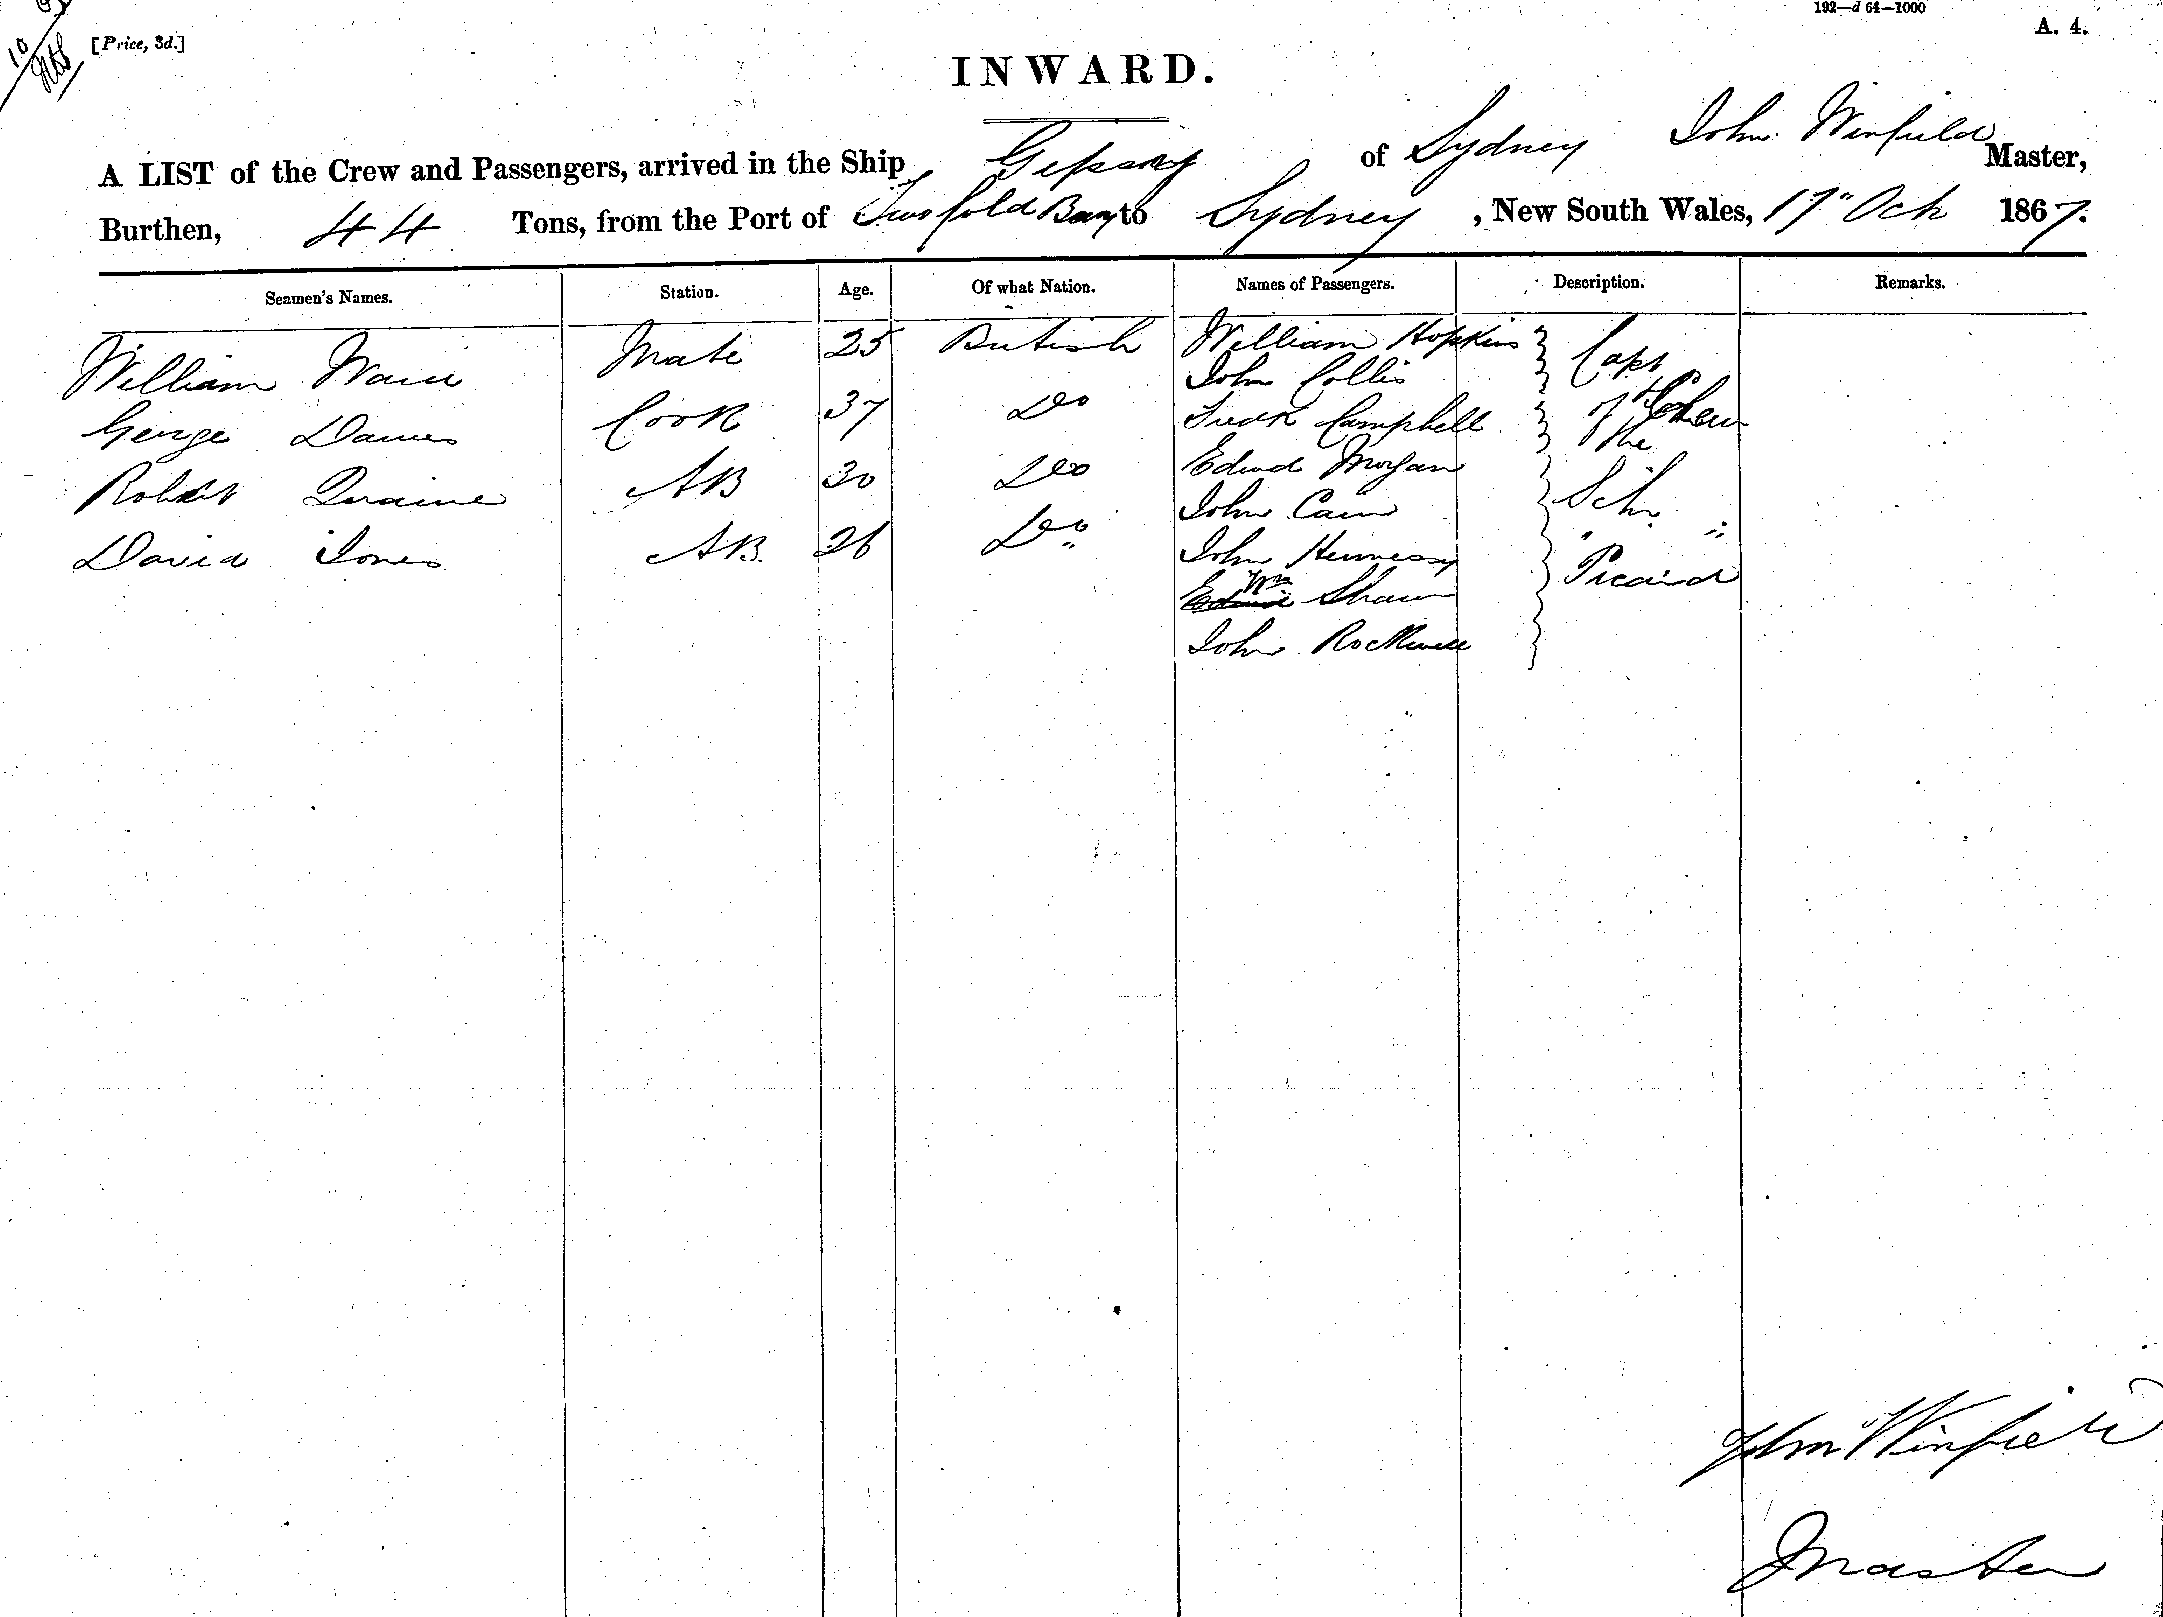 192—d 64—1000
[Price, 3d.]
A. 4.
INWARD.
A LIST of the Crew and Passengers, arrived in the Ship Gipsey of Sydney John Winfield Master,
Burthen, 44 Tons, from the Port of Twofold Bay to Sydney, New South Wales, 17" Oct 1867.
Seamen's Names. Station. Age. Of what Nation. Names of Passengers. Description. Remarks.
William Mate 25 British William Hopkins Capt
John Collis
George Davies Cook 37 Do Fredk Campbell & Crew of the
Edwd Morgan
Robert AB 30 Do John Cain Schr
David Jones AB. 26 Do John Hennessy "Picard
Wm Shaw
John Rockwell
John Winfield
Master